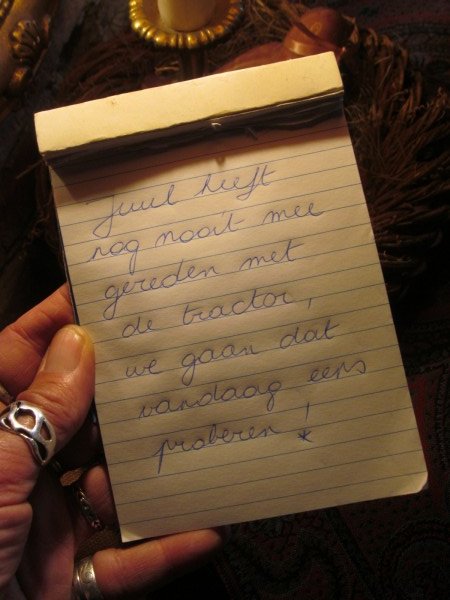 Juul heeft
nog nooit mee
gereden met
de tractor,
we gaan dat
vandaag eens
proberen! *